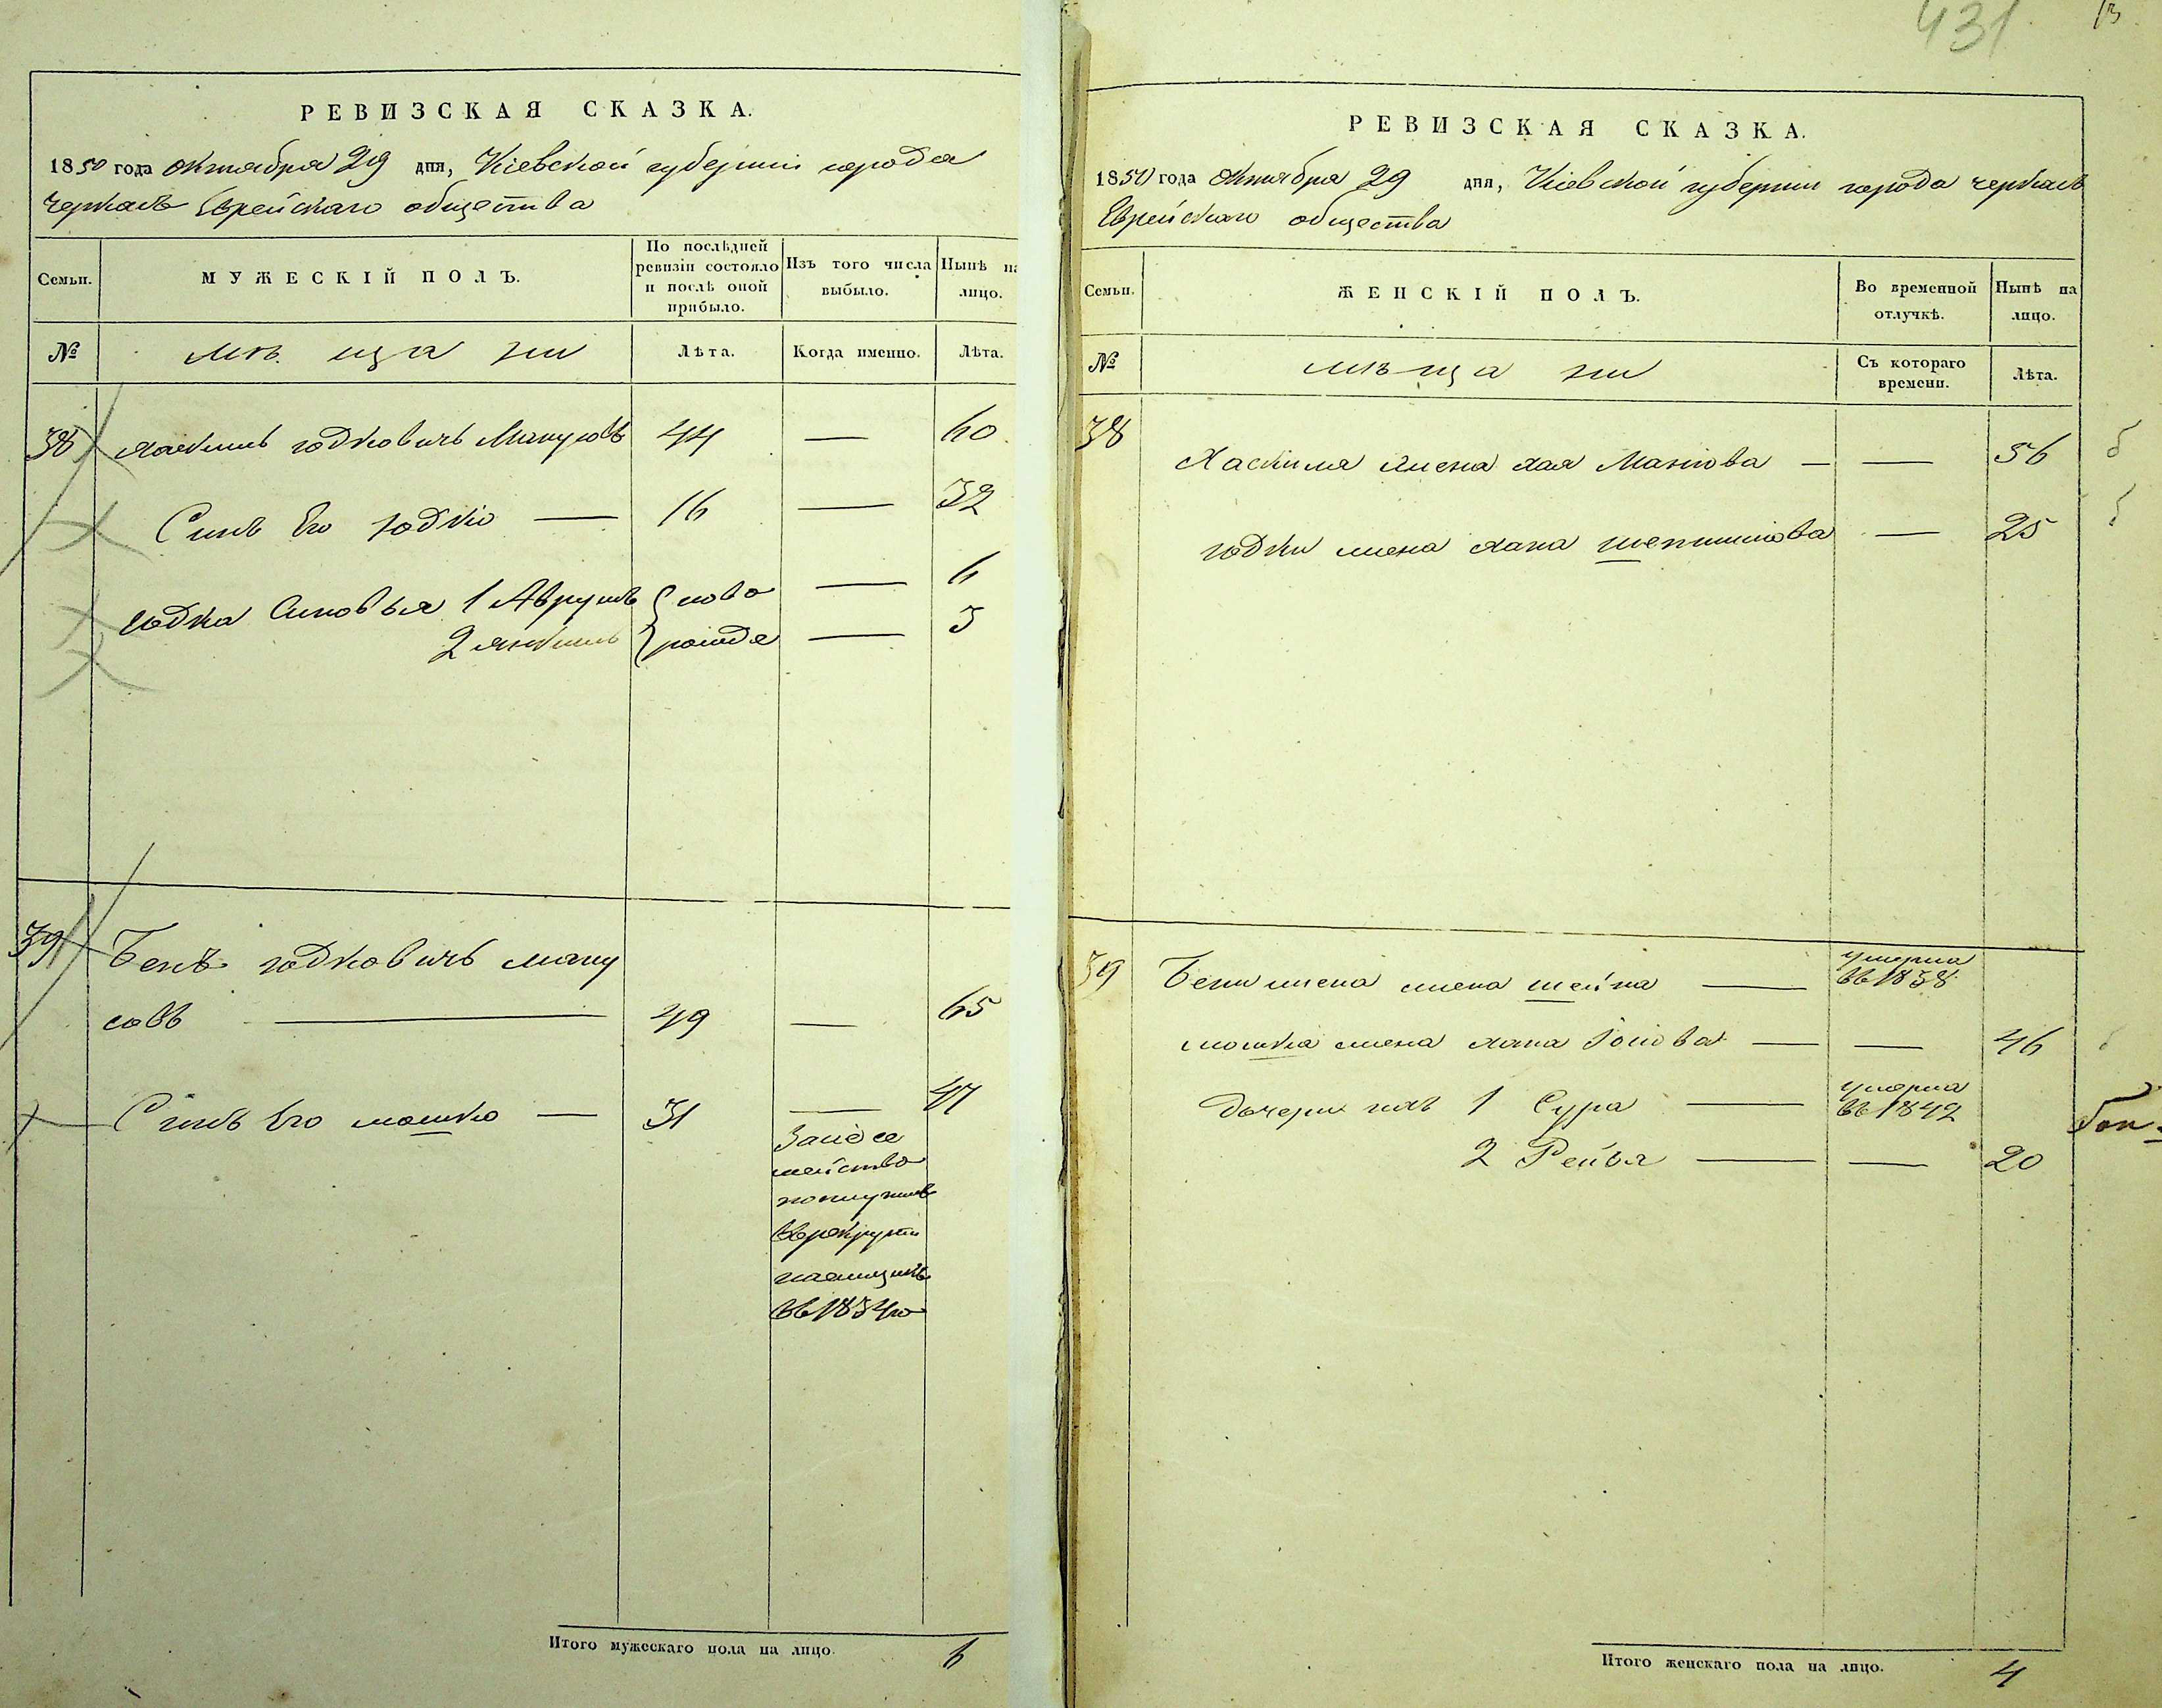 РЕВИЗСКАЯ СКАЗКА.
1850 года октября 29 дня, Кіевской губерніи города
Черкасъ Еврейскаго общества
Семьи.
МУЖЕСКІЙ ПОЛЪ.
По послѣдней ревизіи состояло и послѣ оной прибыло.
Изъ того числа выбыло.
Нынѣ на лицо.
№
мѣщани
Лѣта.
Когда именно.
Лѣта.
38 Хаскиль Юдковичь Манусовъ 44 — 60
Синъ Его Юдко — 16 — 32
Юдка Синовья 1 Аврумъ ново — 6
2 рожде — 3
39 Бенъ Юдковичъ ману
совъ — 49 — 65
Синъ Его мошко — 31 — 47
За сіе се
мейство
поступилъ
въ рекруты
въ 1834го
Итого мужескаго пола на лицо. 6
431
РЕВИЗСКАЯ СКАЗКА.
1850 года октября 29 дня, Кіевской губерніи города черкасъ
Еврейскаго общества
Семьи.
ЖЕНСКІЙ ПОЛЪ.
Во временной отлучкѣ.
Нынѣ на лицо.
№
мѣщани
Съ котораго времени.
Лѣта.
38 Хаскиля жена хая Мошкова — — 56
юдки жена хана — 25
39 Бени жена шейна — умерла
въ 1838
мошка жена хана — — 46
дочери ихъ 1 Сура — умерла
въ 1842
2 Рейзя — — 20
Итого женскаго пола на лицо. 4